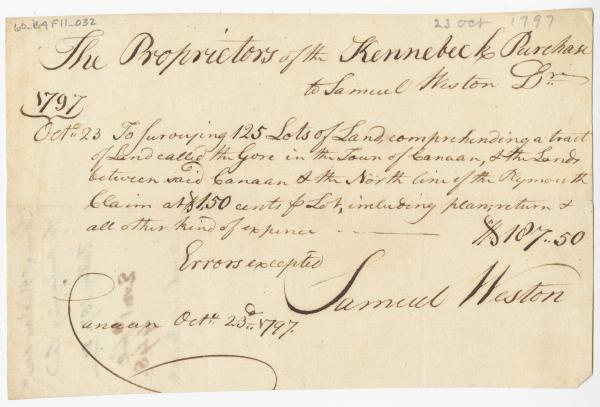 60_B4F11_032
23 Oct 1797
The Proprietors of the Kennebeck Purchase
to Samuel Weston Dr.
1797
Octr. 23 To Surveying 125 Lots of Land, comprehending a tract
of Land called the Gore in the Town of Canaan, & the Lands
between said Canaan & the North line of the Plymouth
Claim at $1.50 cents ⅌ Lot, including plan, return &
all other kind of expence — $187..50
Errors excepted
Samuel Weston
Canaan Octr. 23d. 1797.